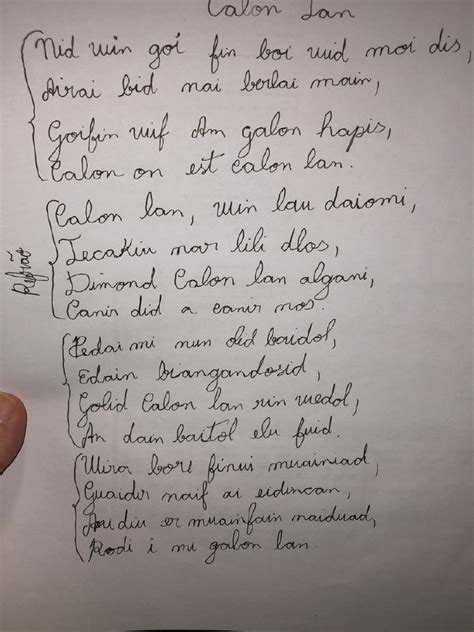 Calon Lan
Nid uin goi fin boi uid moi dis,
Airai bid nai berlai main,
Goifin uif Am galon hapis,
Calon on est calon lan.
Refrão
Calon lan, uin lau daiomi,
Tecakiu nar lili dlos,
Dimond Calon lan algani,
Canir did a canir nos.
Pedai mi nun did baidol,
Edain biangandosid,
Golid Calon lan rin uedol,
An dain baitol elu fuid.
Uira bore finui muainuad,
Guaidir naif ai eidincan,
diu er muainfain naiduad,
Rodi i mi galon lan.